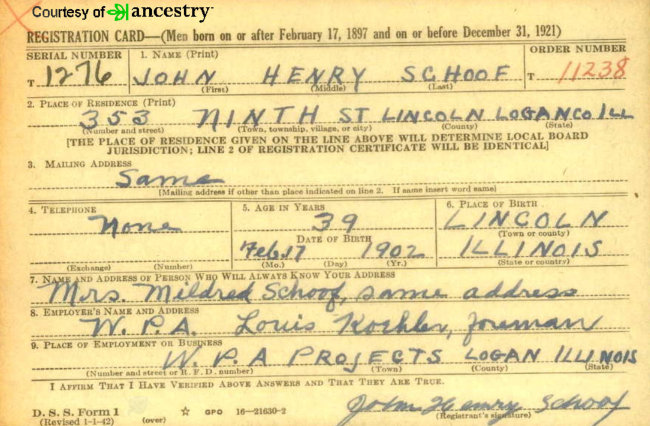 Courtesy of ancestry
REGISTRATION CARD—(Men born on or after February 17, 1897 and on or before December 31, 1921)
SERIAL NUMBER 1. NAME (Print) ORDER NUMBER
T 1276 JOHN HENRY SCHOOF T 11238
(First) (Middle) (Last)
2. PLACE OF RESIDENCE (Print)
353 NINTH ST LINCOLN LOGAN CO ILL
(Number and street) (Town, township, village, or city) (County) (State)
[THE PLACE OF RESIDENCE GIVEN ON THE LINE ABOVE WILL DETERMINE LOCAL BOARD
JURISDICTION; LINE 2 OF REGISTRATION CERTIFICATE WILL BE IDENTICAL]
3. MAILING ADDRESS
Same
[Mailing address if other than place indicated on line 2. If same insert word same]
4. TELEPHONE 5. AGE IN YEARS 6. PLACE OF BIRTH
None 39 LINCOLN
DATE OF BIRTH (Town or county)
Feb. 17 1902 ILLINOIS
(Exchange) (Number) (Mo.) (Day) (Yr.) (State or country)
7. NAME AND ADDRESS OF PERSON WHO WILL ALWAYS KNOW YOUR ADDRESS
Mrs. Mildred Schoof, same address
8. EMPLOYER'S NAME AND ADDRESS
W.P.A. Louis Koehler, foreman
9. PLACE OF EMPLOYMENT OR BUSINESS
W.P.A PROJECTS LOGAN ILLINOIS
(Number and street or R. F. D. number) (Town) (County) (State)
I AFFIRM THAT I HAVE VERIFIED ABOVE ANSWERS AND THAT THEY ARE TRUE.
D. S. S. Form 1 ☆ GPO 16—21630-2 John Henry Schoof
(Revised 1-1-42) (over) (Registrant's signature)